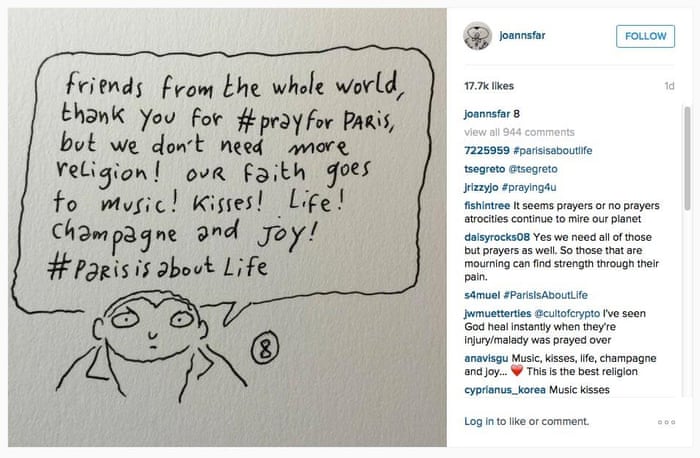 friends from the whole world,
thank you for #prayforPARis,
but we don't need more
religion! OUR faith goes
to music! Kisses! Life!
Champagne and Joy!
#Parisisaboutlife
8
joannsfar
FOLLOW
17.7k likes
1d
joannsfar 8
view all 944 comments
7225959 #parisisaboutlife
tsegreto @tsegreto
jrizzyjo #praying4u
fishintree It seems prayers or no prayers
atrocities continue to mire our planet
daisyrocks08 Yes we need all of those
but prayers as well. So those that are
mourning can find strength through their
pain.
s4muel #ParisIsAboutLife
jwmuetterties @cultofcrypto I've seen
God heal instantly when they're
injury/malady was prayed over
anavisgu Music, kisses, life, champagne
and joy... ❤️ This is the best religion
cyprianus_korea Music kisses
Log in to like or comment.